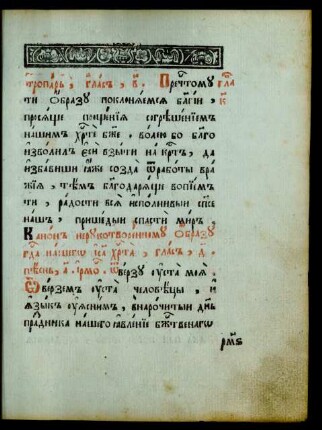 тропа́рь , гла́съ , в҃ . Пречⷭ҇томꙋ
ти ѡ҆́бразꙋ покланѧ́емсѧ бл҃гі́и ,
просѧ́ще проще́нїѧ согрѣше́нїемъ
на́шимъ хрⷭ҇те́ бж҃е . во́лею бо бл҃го
изво́лилъ є҆сѝ взы́ти на крⷭ҇тъ , да
изба́виши ꙗ҆̀же созда̀ ѿ рабо́ты вра
жїѧ , тѣ́мъ благодарѧ́ще вопїе́мъ
ти , ра́дости всѧ̀ и҆спо́лнивыи сп҃се
на́шъ , прише́дыи спастѝ мі́ръ .
Кано́нъ нерꙋкотворе́нномꙋ ѡ҆́бразꙋ
гдⷭ҇а на́шегѡ і҆с҃а хрⷭ҇та̀ , гла́съ , д҃ .
пѣ́снь , а҃ . і҆рмо́съ . Ѿве́рзꙋ ᲂу҆ста̀ моѧ̀ .
Ѿве́рземъ ᲂу҆ста̀ человѣ́цы , и҆
ꙗ҆зы́къ ᲂу҆ѧсни́мъ , в нарочи́тыи дн҃ь
пра́здника на́шегѡ ꙗ҆вле́нїе бж҃е́ственагѡ